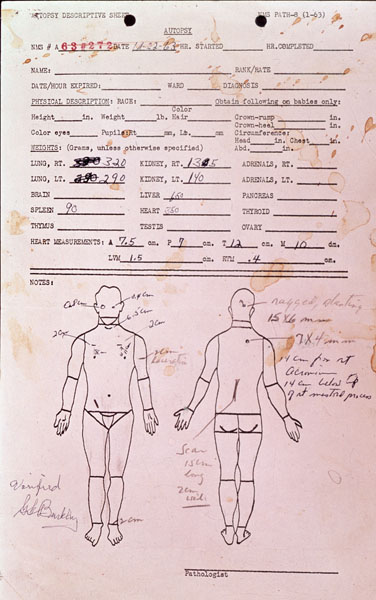 AUTOPSY DESCRIPTIVE SHEET NMS PATH-8 (1-63)
AUTOPSY
NMS # A 63 #272 DATE 11-22-63 HR. STARTED HR.COMPLETED
NAME: RANK/RATE
DATE/HOUR EXPIRED: WARD DIAGNOSIS
PHYSICAL DESCRIPTION: RACE: Obtain following on babies only:
Color
Height in. Weight lb. Hair Crown-rump in.
Crown-heel in.
Color eyes Pupils:Rt mm, Lt. mm Circumference:
Head in. Chest in.
WEIGHTS: (Grams, unless otherwise specified) Abd. in.
LUNG, RT. 320 KIDNEY, RT. 130 ADRENALS, RT.
LUNG, LT. 290 KIDNEY, LT. 140 ADRENALS, LT.
BRAIN LIVER 650 PANCREAS
SPLEEN 90 HEART 350 THYROID
THYMUS TESTIS OVARY
HEART MEASUREMENTS: A 7.5 cm. P 7 cm. T 12 cm. M 10 cm.
LVM 1.5 cm. RVM .4 cm.
NOTES:
ragged, slanting
15 x 6 mm
7 X 4 mm
14 cm from rt
acromion
14 cm below tip
of rt mastoid process
Scar
15 cm
long
2 cm
wide
Verified
GG Burkley
2 cm
Pathologist